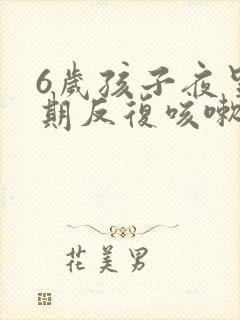 6歲孩子夜
期反復咳嗽
花美男